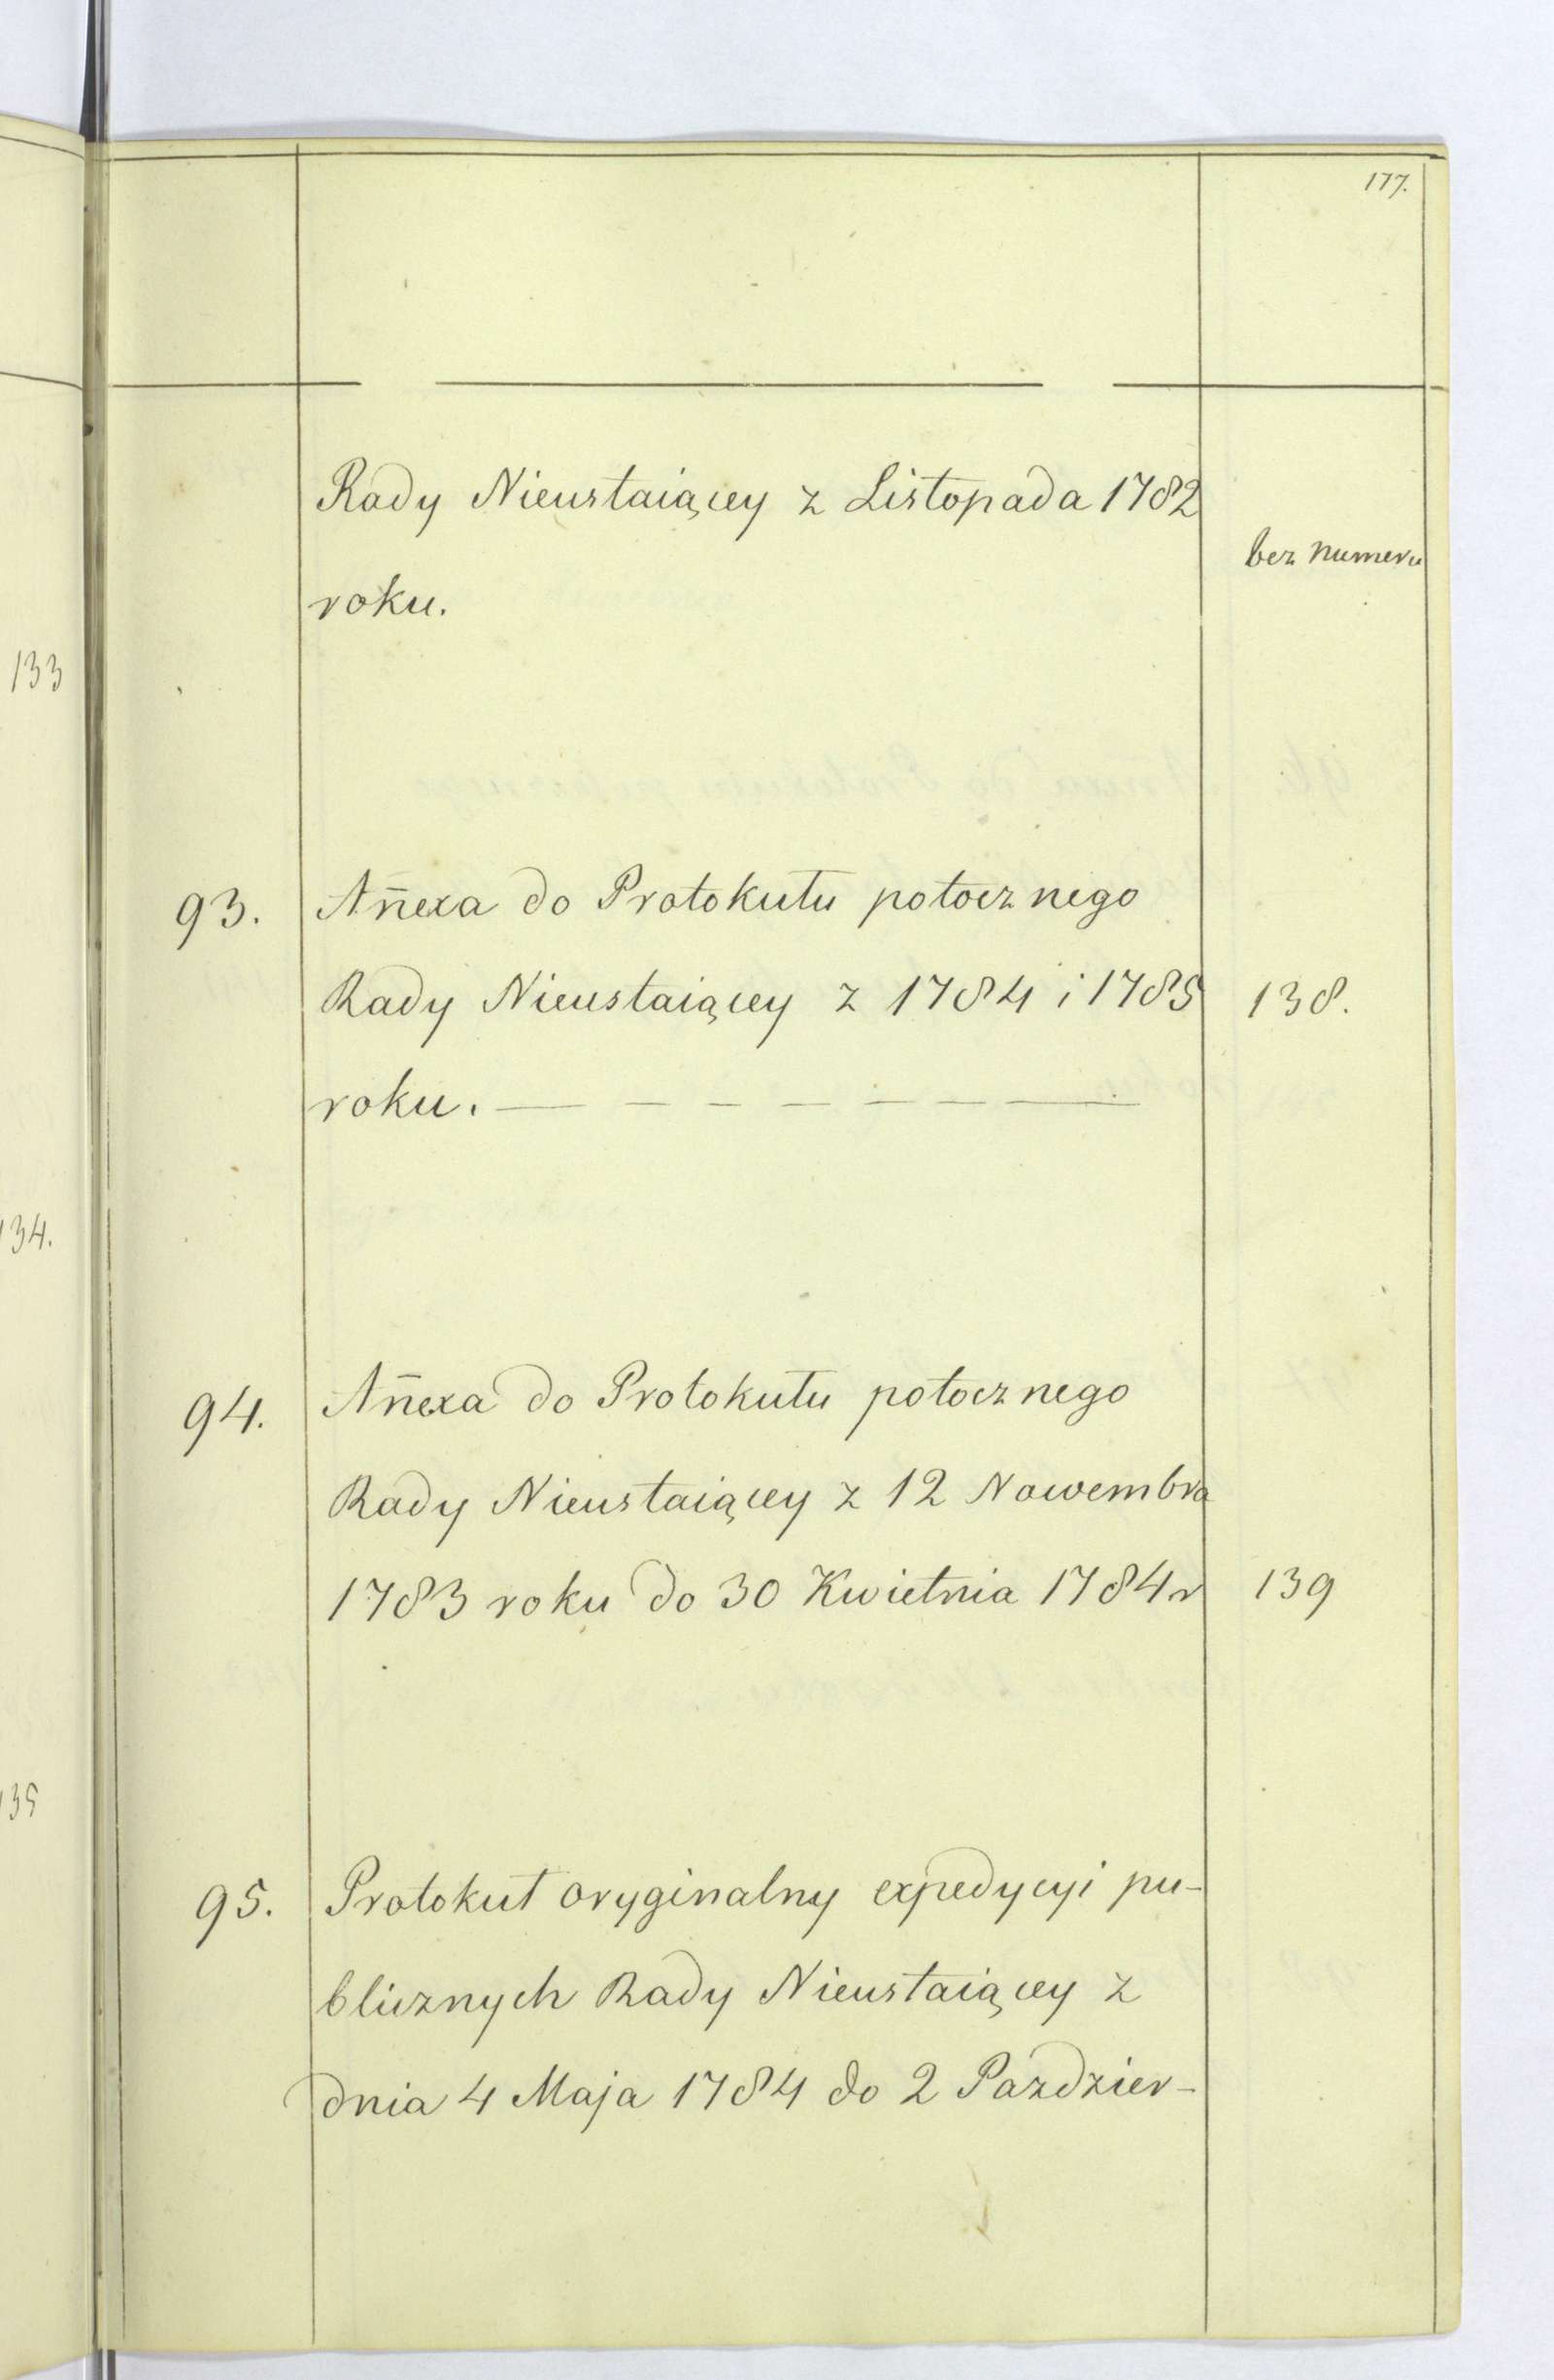 177.
Rady Nieustaiącey z Listopada 1782
bez numeru
roku.
133
93. Añexa do Protokułu potocznego
Rady Nieustaiącey z 1784 i 1785 138.
roku. — — — — — — —
134.
94. Añexa do Protokułu potocznego
Rady Nieustaiącey z 12 Nowembra
1783 roku do 30 Kwietnia 1784 r 139
135
95. Protokuł oryginalny expedycyi pu-
blicznych Rady Nieustaiącey z
dnia 4 Maja 1784 do 2 Pazdzier-